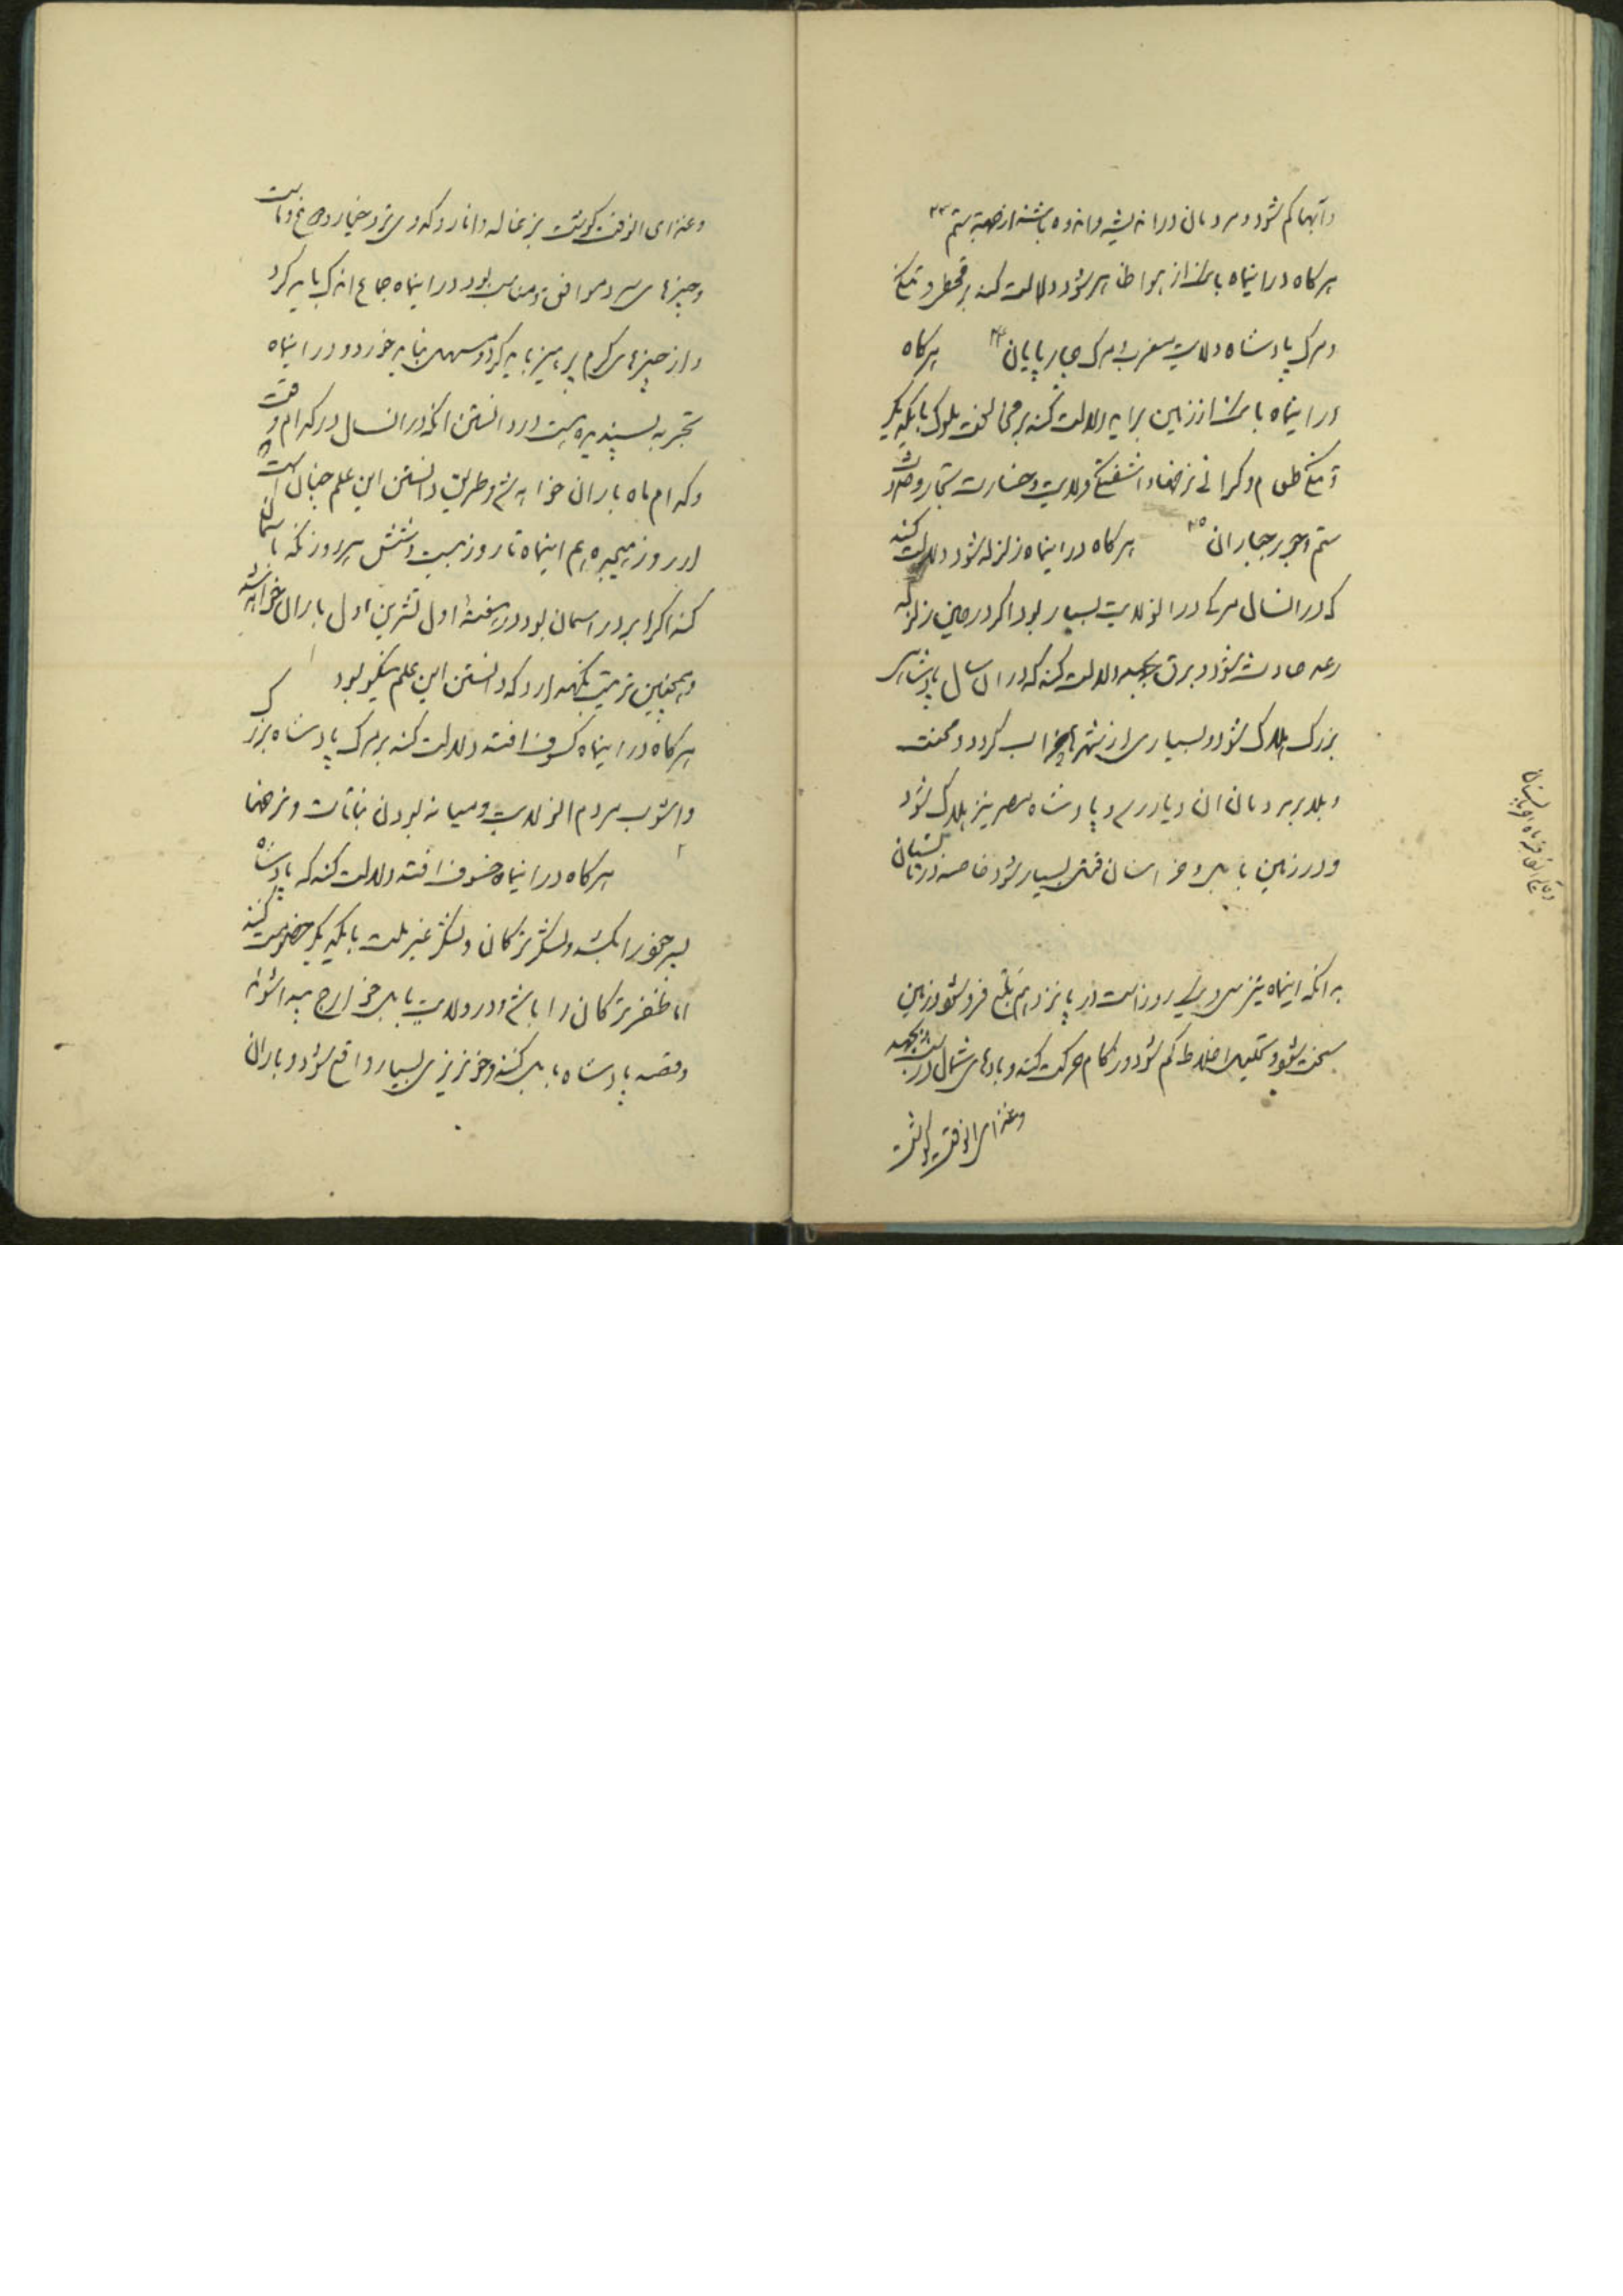 و آبها کم شود و مردمان در اندیشه و اندوه باشند از جهة ستم ۲۳
هرگاه دراینماه بانک از هوا ظاهر شود دلالت کند بر قحط و تنگی
و مرگ پادشاه ولایت مغرب و مرگ چهارپایان ۲۴ هرگاه
دراینماه بانک از زمین براید دلالت کند بر مخالفت ملوک بایکدیگر
و تنگی طعام و گرانی نرخها و اشفتگی ولایت و خسارت تجار و
ستم و جور جباران ۲۵ هرگاه دراینماه زلزله شود دلالت کند
که درانسال مرگ درانولایت بسیار بود و اگر در حین زلزله
رعد حادث شود و برق جهد دلالت کند که دران سال پادشاهی
بزرگ هلاک شود و بسیاری از شهرها خراب گردد و محنت
و بلا بر مردمان ان دیار رسد و پادشاه مصر نیز هلاک شود
و در زمین بابل و خراسان فتنه بسیار شود خاصه در تابستان
بدانکه اینماه نیز سی و یک روز است در پانزدهم بلغم فرو شود و زمین
سخت شود و تکلیف اخلاط کم شود و زکام حرکت کند و بادهای شمال
وغذای انوقت گوشت
وغذای انوقت گوشت بزغاله و انار و کدوی تر و خیار و
و چیزهای سرد موافق و مناسب بود و دراینماه جماع اندک باید کرد
و از چیزهای گرم پرهیز باید کرد و مسهل نباید خورد و دراینماه
تجربه پسندیده است در دانستن انکه درانسال در کدام وقت
و کدام ماه باران خواهد شد و طریق دانستن این علم چنان است
از روز هیجدهم اینماه تا روز بیست و شش هر روز نگه باسمان
کند اگر ابر در اسمان بود در هفته اول تشرین اول باران خواهد شد
و همچنین ترتیب نگهدارد که دانستن این علم نیکو بود
هرگاه دراینماه کسوف افتد دلالت کند بر مرگ پادشاه بزرگ
و اشوب مردم انولایت و میانه بودن نباتات و نرخها
۲ هرگاه دراینماه خسوف افتد دلالت کند که پادشاه
پسر خود را بکشد و لشکر ترکان و لشکر غیر ملت بایکدیگر خصومت کنند
اما ظفر ترکان را باشد و در ولایت بابل خوارج پیدا شوند
و قصد پادشاه بابل کنند و خونریزی بسیار واقع شود و باران